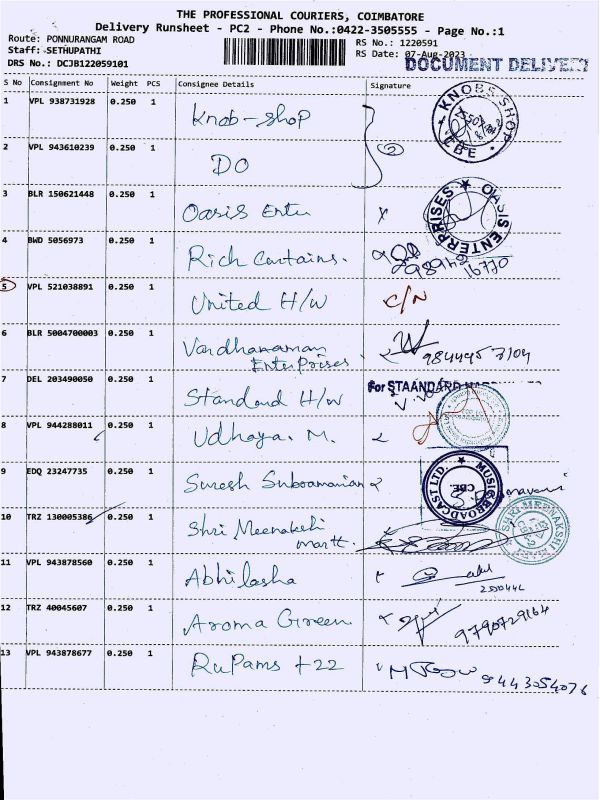 THE PROFESSIONAL COURIERS, COIMBATORE
Delivery Runsheet - PC2 - Phone No.:0422-3505555 - Page No.:1
Route: PONNURANGAM ROAD
RS No.: 1220591
Staff: SETHUPATHI
RS Date: 07-Aug-2023
DRS No.: DCJB122059101
DOCUMENT DELIVERY
S No Consignment No Weight PCS Consignee Details Signature
1 VPL 938731928 0.250 1 Knob-shop KNOBS SHOP CBE
2 VPL 943610239 0.250 1 DO 2
3 BLR 150621448 0.250 1 Oasis Enter OASIS ENTERPRISES
4 BWD 5056973 0.250 1 Rich Curtains. 98942 16770
5 VPL 521038891 0.250 1 United H/W C/N
6 BLR 5004700003 0.250 1 Vardhamaman Enterprises
7 DEL 203490050 0.250 1 Standard H/W For STAANDARD
8 VPL 944288011 0.250 1 Udhaya. M.
9 EDQ 23247735 0.250 1 Suresh Subramanian MUSIC BROADCAST LTD. CBE.
10 TRZ 130005386 0.250 1 Shri Meenakshi martt. SHRI MEENAKSHI MART
11 VPL 943878560 0.250 1 Abhilasha
12 TRZ 40045607 0.250 1 Aroma Green 9790729164
13 VPL 943878677 0.250 1 RuPams +22 9443054076